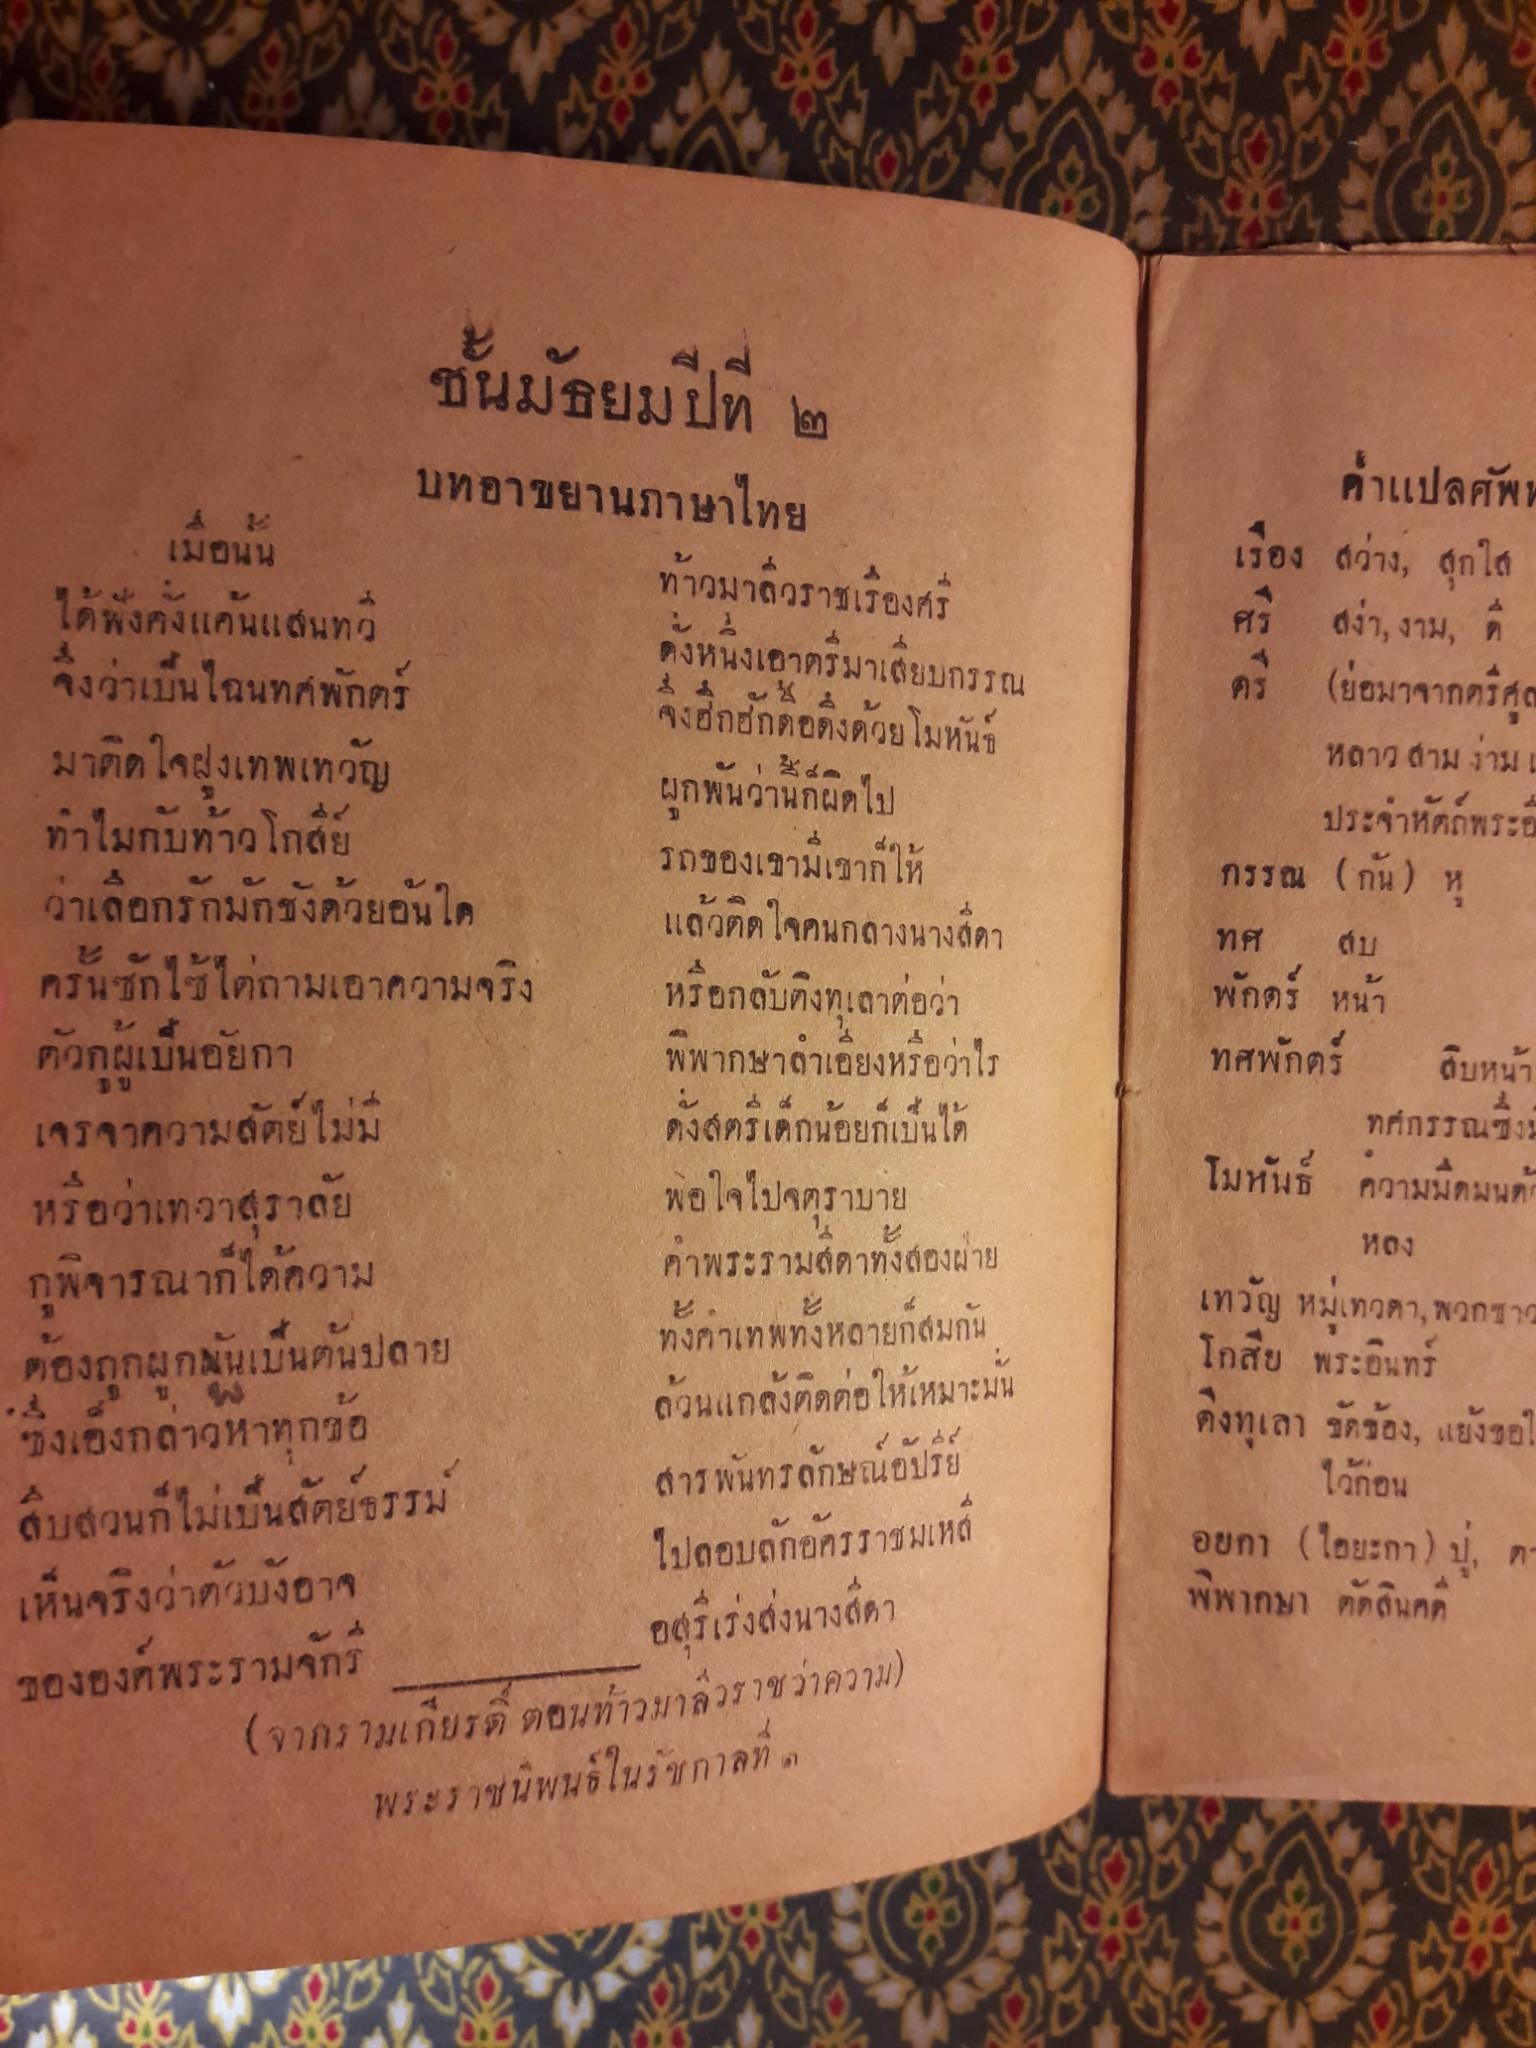 ชั้นมัธยมปีที่ ๒
บทอาขยานภาษาไทย
เมื่อนั้น ท้าวมาลีวราชเรืองศรี
ได้ฟังคั่งแค้นแสนทวี ดั่งหนึ่งเอาตรีมาเสียบกรรณ
จึ่งว่าเป็นไฉนทศพักตร์ จึ่งฮึกฮักดื้อดึงด้วยโมหันธ์
มาติดใจฝูงเทพเทวัญ ผูกพันว่านี้ก็ผิดไป
ทำไมกับท้าวโกสีย์ รถของเขามีเขาก็ให้
ว่าเลือกรักมักชังด้วยอันใด แล้วติดใจคนกลางนางสีดา
ครั้นซักไซ้ไต่ถามเอาความจริง หรือกลับติงทุเลาต่อว่า
ตัวกูผู้เป็นอัยกา พิพากษาลำเอียงหรือว่าไร
เจรจาความสัตย์ไม่มี ดั่งสตรีเด็กน้อยก็เป็นได้
หรือว่าเทวาสุราลัย พอใจไปจตุราบาย
กูพิจารณาก็ได้ความ คำพระรามสีดาทั้งสองฝ่าย
ต้องถูกผูกพันเป็นต้นปลาย ทั้งคำเทพทั้งหลายก็สมกัน
ซึ่งเอ็งกล่าวหาทุกข้อ ล้วนแกล้งติดต่อให้เหมาะมั่น
สืบสวนก็ไม่เป็นสัตย์ธรรม์ สารพันทรลักษณ์อัปรีย์
เห็นจริงว่าตัวบังอาจ ไปลอบลักอัครราชมเหสี
ขององค์พระรามจักรี อสุรีเร่งส่งนางสีดา
(จากรามเกียรติ์ ตอนท้าวมาลีวราชว่าความ)
พระราชนิพนธ์ในรัชกาลที่ ๑
คำแปลศัพท
เรือง สว่าง, สุกใส
ศรี สง่า, งาม, ดี
ตรี (ย่อมาจากตรีศูล
หลาวสามง่าม
ประจำหัตถ์พระอิ
กรรณ (กัน) หู
ทศ สบ
พักตร์ หน้า
ทศพักตร์ สิบหน้า
ทศกรรณซึ่ง
โมหันธ์ ความมืดมนด้
หลง
เทวัญ หมู่เทวดา, พวกชาว
โกสีย พระอินทร์
ติงทุเลา ขัดข้อง, แย้งขอ
ไว้ก่อน
อยกา (ไอยะกา) ปู่, ตา
พิพากษา ตัดสินคดี